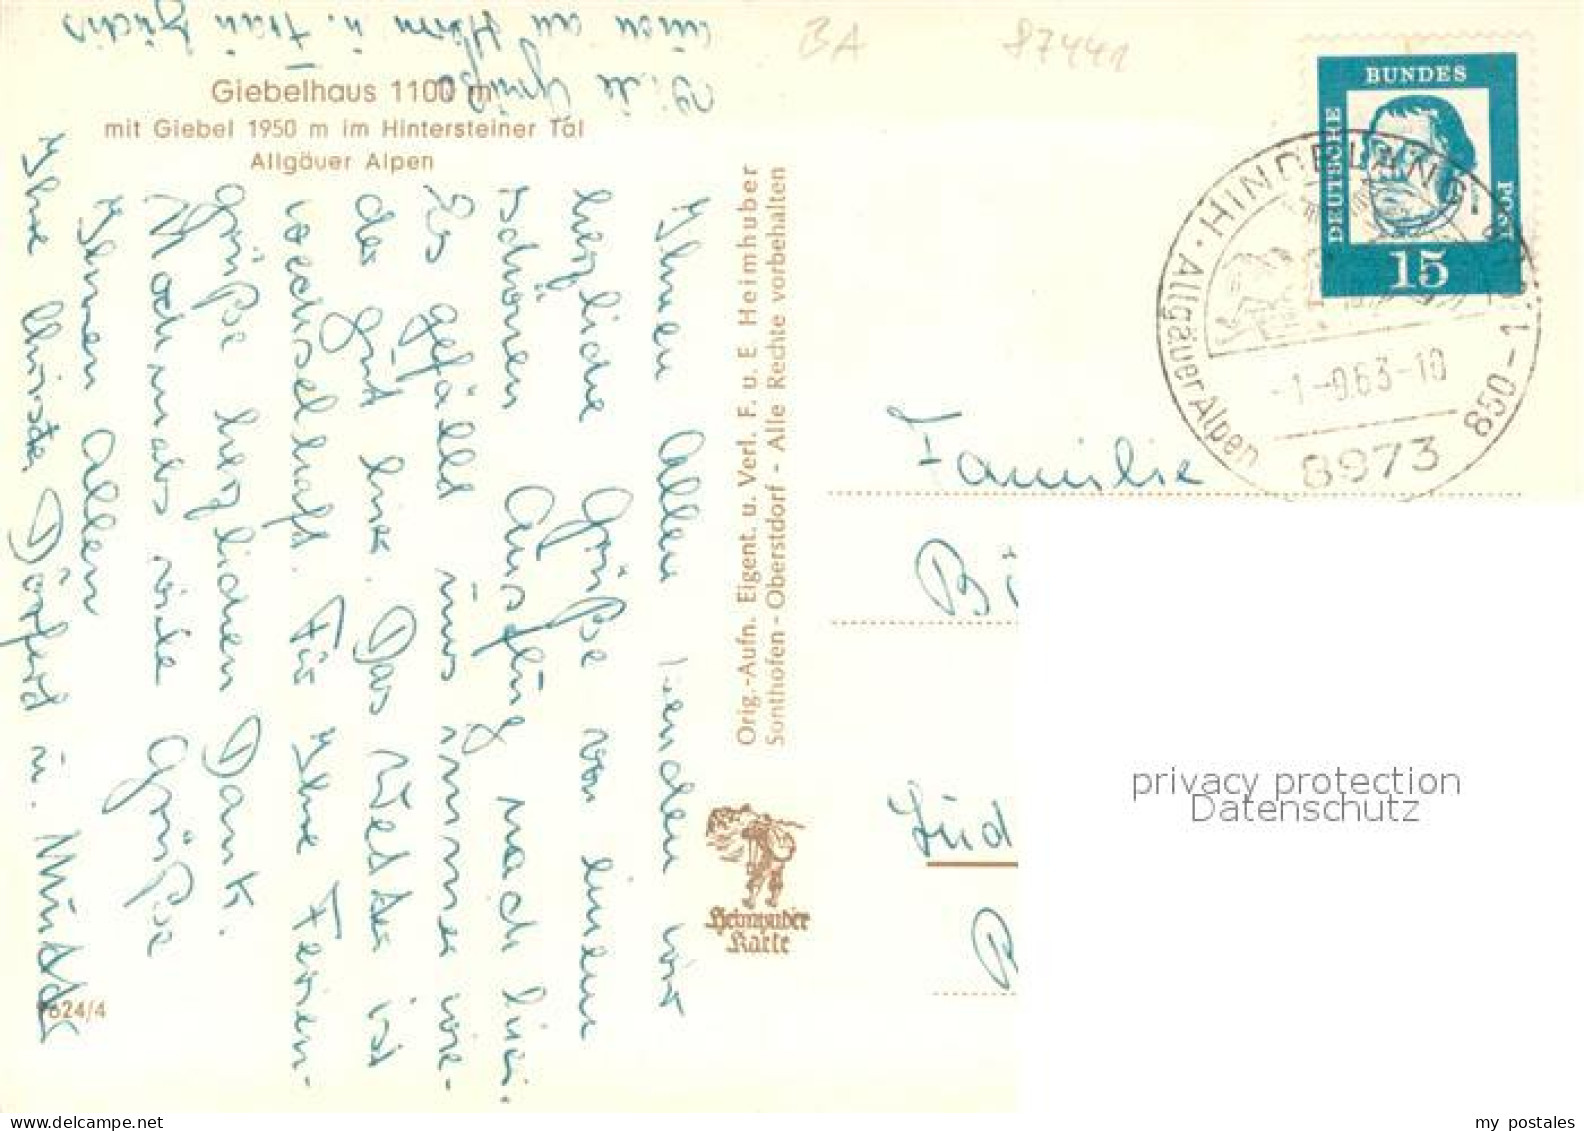 Giebelhaus 1100 m
mit Giebel 1950 m im Hintersteiner Tal
Allgäuer Alpen
BA
87441
DEUTSCHE
BUNDES
POST
15
HINDELANG
Allgäuer Alpen
850 - 1
-1.-9.63-10
8973
Ihnen Allen senden wir
herzliche Grüße von einem
schönen Ausflug nach hier.
Es gefällt uns immer wie-
der gut hier. Das Wetter ist
wechselhaft. Für Ihre Ferien-
grüße herzlichen Dank.
Nochmals viele Grüße
Ihnen Allen
Ihre Christa Dörfert u. Mutti
Viele Grüße
an Herrn u. Frau
Orig.-Aufn. Eigent. u. Verl. F. u. E Heimhuber
Sonthofen - Oberstdorf - Alle Rechte vorbehalten
Heimhuber
Karte
624/4
Familie
Bü
Süd
privacy protection
Datenschutz
my postales